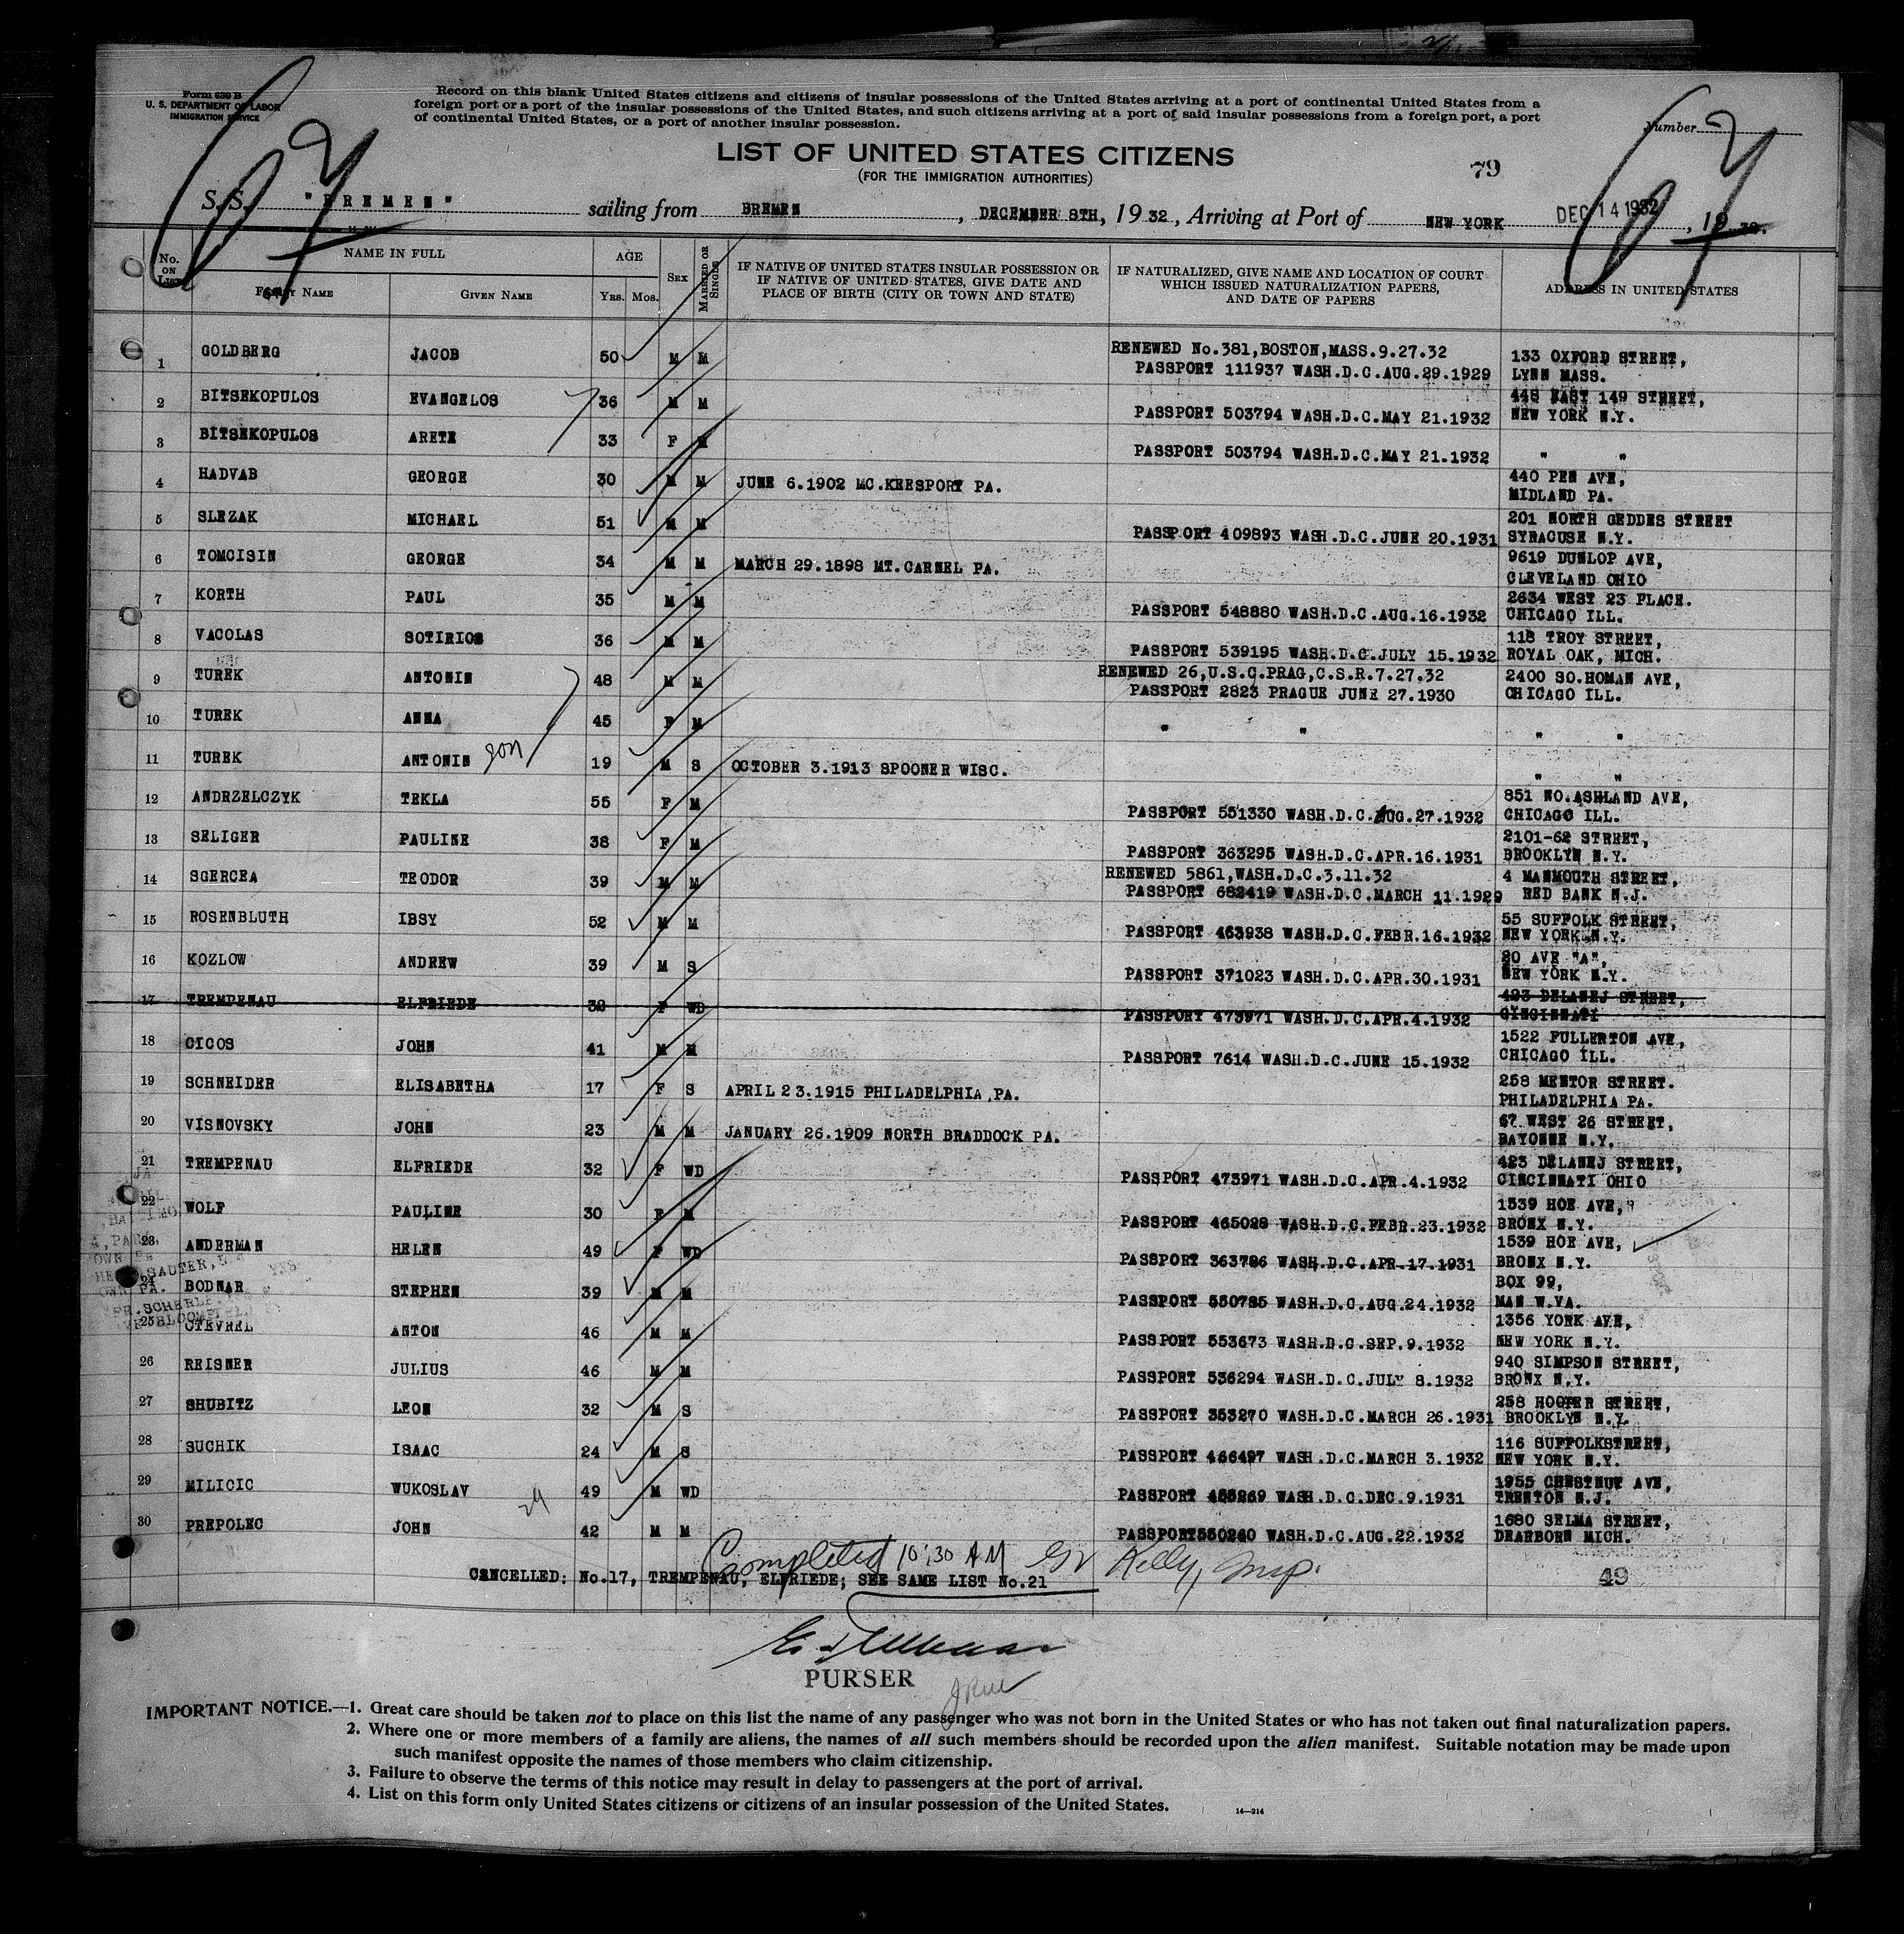 Form 630 B
U. S. DEPARTMENT OF LABOR
IMMIGRATION SERVICE
Record on this blank United States citizens and citizens of insular possessions of the United States arriving at a port of continental United States from a
foreign port or a port of the insular possessions of the United States, and such citizens arriving at a port of said insular possessions from a foreign port, a port
of continental United States, or a port of another insular possession.
Number
LIST OF UNITED STATES CITIZENS
(FOR THE IMMIGRATION AUTHORITIES)
79
S. S. "BREMEN" sailing from BREMEN, DECEMBER 8TH, 1932, Arriving at Port of NEW YORK DEC 14 1932, 19
No. ON LIST NAME IN FULL FAMILY NAME GIVEN NAME AGE YRS. MOS. SEX MARRIED OR SINGLE IF NATIVE OF UNITED STATES INSULAR POSSESSION OR IF NATIVE OF UNITED STATES, GIVE DATE AND PLACE OF BIRTH (CITY OR TOWN AND STATE) IF NATURALIZED, GIVE NAME AND LOCATION OF COURT WHICH ISSUED NATURALIZATION PAPERS, AND DATE OF PAPERS ADDRESS IN UNITED STATES
1 GOLDBERG JACOB 50 M M RENEWED No.381,BOSTON,MASS.9.27.32
PASSPORT 111937 WASH.D.C.AUG.29.1929 133 OXFORD STREET,
LYNN MASS.
2 BITSEKOPULOS EVANGELOS 36 M M PASSPORT 503794 WASH.D.C.MAY 21.1932 448 EAST 149 STREET,
NEW YORK N.Y.
3 BITSEKOPULOS ARETE 33 F M PASSPORT 503794 WASH.D.C.MAY 21.1932 " "
4 HADVAB GEORGE 30 M M JUNE 6.1902 MC.KEESPORT PA. 440 PEN AVE,
MIDLAND PA.
5 SLEZAK MICHAEL 51 M M PASSPORT 409893 WASH.D.C.JUNE 20.1931 201 NORTH GEDDES STREET
SYRACUSE N.Y.
6 TOMCISIN GEORGE 34 M M MARCH 29.1898 MT.CARMEL PA. 9619 DUNLOP AVE,
CLEVELAND OHIO
7 KORTH PAUL 35 M M PASSPORT 548880 WASH.D.C.AUG.16.1932 2634 WEST 23 PLACE.
CHICAGO ILL.
8 VACOLAS SOTIRIOS 36 M M PASSPORT 539195 WASH.D.C.JULY 15.1932 118 TROY STREET,
ROYAL OAK, MICH.
9 TUREK ANTONIN 48 M M RENEWED 26,U.S.C.PRAG,C.S.R.7.27.32
PASSPORT 2823 PRAGUE JUNE 27.1930 2400 SO.HOMAN AVE,
CHICAGO ILL.
10 TUREK ANNA 45 F M " " " "
11 TUREK ANTONIN son 19 M S OCTOBER 3.1913 SPOONER WISC. " "
12 ANDRZELCZYK TEKLA 55 F M PASSPORT 551330 WASH.D.C.AUG.27.1932 851 NO.ASHLAND AVE,
CHICAGO ILL.
13 SELIGER PAULINE 38 F M PASSPORT 363295 WASH.D.C.APR.16.1931 2101-62 STREET,
BROOKLYN N.Y.
14 SGERCEA TEODOR 39 M M RENEWED 5861,WASH.D.C.3.11.32
PASSPORT 682419 WASH.D.C.MARCH 11.1929 4 MANMOUTH STREET,
RED BANK N.J.
15 ROSENBLUTH IBSY 52 M M PASSPORT 463938 WASH.D.C.FEBR.16.1932 55 SUFFOLK STREET,
NEW YORK N.Y.
16 KOZLOW ANDREW 39 M S PASSPORT 371023 WASH.D.C.APR.30.1931 20 AVE "A",
NEW YORK N.Y.
17 TREMPENAU ELFRIEDE 32 F WD PASSPORT 473971 WASH.D.C.APR.4.1932 423 DELANEJ STREET,
CINCINNATI
18 CICOS JOHN 41 M M PASSPORT 7614 WASH.D.C.JUNE 15.1932 1522 FULLERTON AVE,
CHICAGO ILL.
19 SCHNEIDER ELISABETHA 17 F S APRIL 23.1915 PHILADELPHIA,PA. 258 MENTOR STREET.
PHILADELPHIA PA.
20 VISNOVSKY JOHN 23 M M JANUARY 26.1909 NORTH BRADDOCK PA. 67 WEST 26 STREET,
BAYONNE N.Y.
21 TREMPENAU ELFRIEDE 32 F WD PASSPORT 473971 WASH.D.C.APR.4.1932 423 DELANEJ STREET,
CINCINNATI OHIO
22 WOLF PAULINE 30 F M PASSPORT 465028 WASH.D.C.FEBR.23.1932 1539 HOE AVE,
BRONX N.Y.
23 ANDERMAN HELEN 49 F WD PASSPORT 363786 WASH.D.C.APR.17.1931 1539 HOE AVE,
BRONX N.Y.
24 BODNAR STEPHEN 39 M M PASSPORT 550785 WASH.D.C.AUG.24.1932 BOX 99,
MAN W.VA.
25 CTEVREL ANTON 46 M M PASSPORT 553673 WASH.D.C.SEP.9.1932 1356 YORK AVE,
NEW YORK N.Y.
26 REISNER JULIUS 46 M M PASSPORT 536294 WASH.D.C.JULY 8.1932 940 SIMPSON STREET,
BRONX N.Y.
27 SHUBITZ LEON 32 M S PASSPORT 353270 WASH.D.C.MARCH 26.1931 258 HOOPER STREET,
BROOKLYN N.Y.
28 SUCHIK ISAAC 24 M S PASSPORT 466497 WASH.D.C.MARCH 3.1932 116 SUFFOLKSTREET,
NEW YORK N.Y.
29 MILICIC WUKOSLAV 49 M WD PASSPORT 455269 WASH.D.C.DEC.9.1931 1955 CHESTNUT AVE,
TRENTON N.J.
29
30 PREPOLEC JOHN 42 M M PASSPORT550260 WASH.D.C.AUG.22.1932 1680 SELMA STREET,
DEARBORN MICH.
Completed 10:30 AM Kelly, Insp.
CANCELLED: No.17, TREMPENAU, ELFRIEDE; SEE SAME LIST No.21
49
PURSER
IMPORTANT NOTICE.—1. Great care should be taken not to place on this list the name of any passenger who was not born in the United States or who has not taken out final naturalization papers.
2. Where one or more members of a family are aliens, the names of all such members should be recorded upon the alien manifest. Suitable notation may be made upon
such manifest opposite the names of those members who claim citizenship.
3. Failure to observe the terms of this notice may result in delay to passengers at the port of arrival.
4. List on this form only United States citizens or citizens of an insular possession of the United States.
14—214